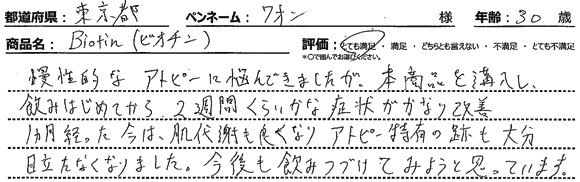 都道府県: 東京都 ペンネーム: ワオン 様 年齢: 30 歳
商品名: Biotin (ビオチン) 評価: とても満足 ・ 満足 ・ どちらとも言えない ・ 不満足 ・ とても不満足
※○で囲んでお選びください。
慢性的な アトピーに悩んできましたが、本商品を購入し、
飲みはじめてから、2週間くらいかな 症状がかなり改善
1カ月経った今は、肌代謝も良くなり アトピー特有の跡も大分
目立たなくなりました。今後も飲みつづけてみようと思っています。